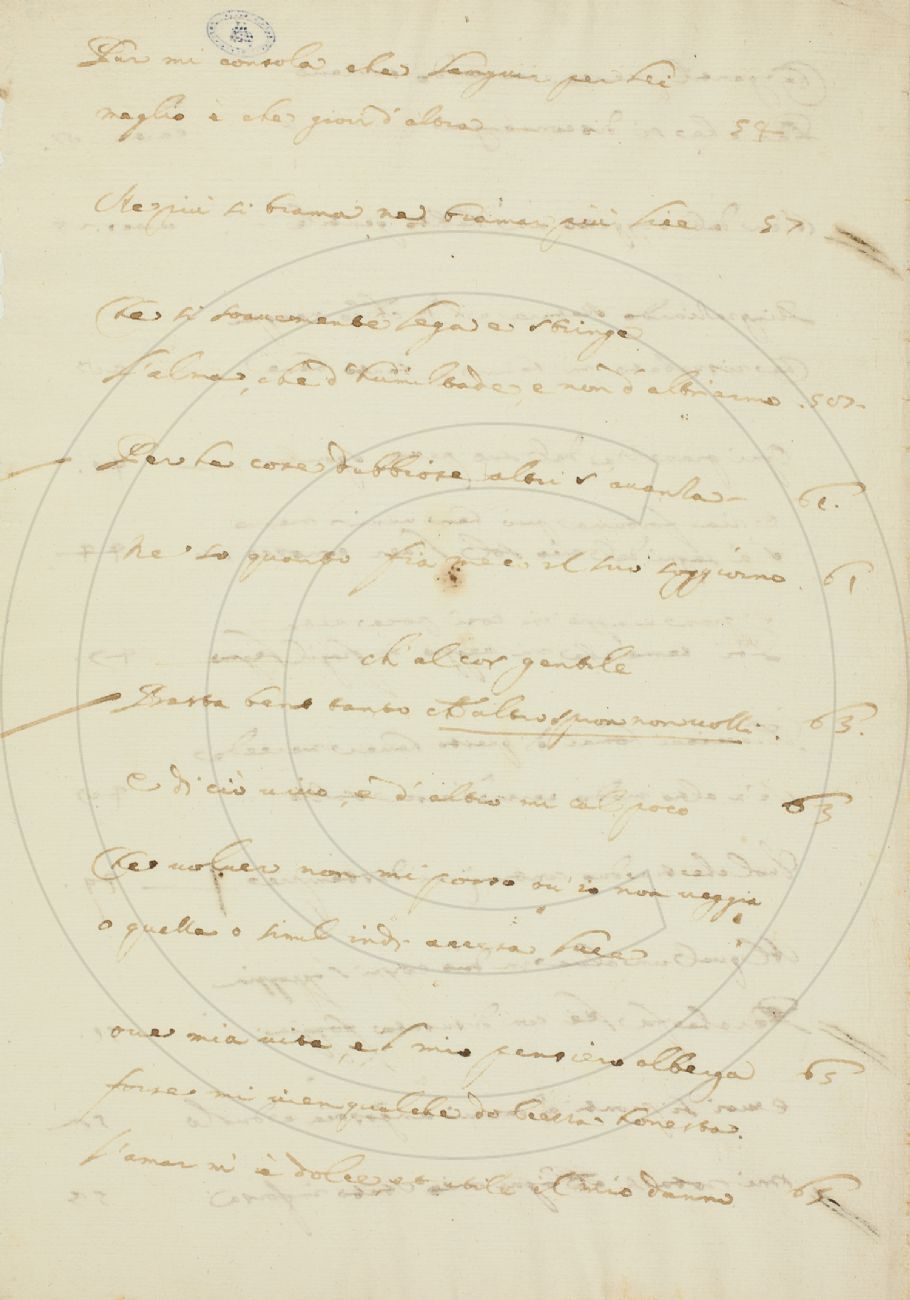 Pur mi consola che languir per lei
meglio è che gioir d'altra 54
Ne più si brama ne bramar più lice 57
Che si soavemente lega e stringe
L'alma, che d'humiltade, e non d'altr'armo .507.
Per le cose dubbiose altri s'avanza 61.
Ne so quanto fia meco il suo soggiorno 61
ch'al cor gentile
Basta ben tanto ch'altro spron non volli. 63.
E di ciò vivo, e d'altro mi cal poco 63
Che volver non mi posso ov'io non veggia
o quella o simil indi accesa luce
ove mia vita, e 'l mio pensiero alberga 65
forse mi vien qualche dolcezza honesta.
L'amar m'è dolce et utile il mio danno 65